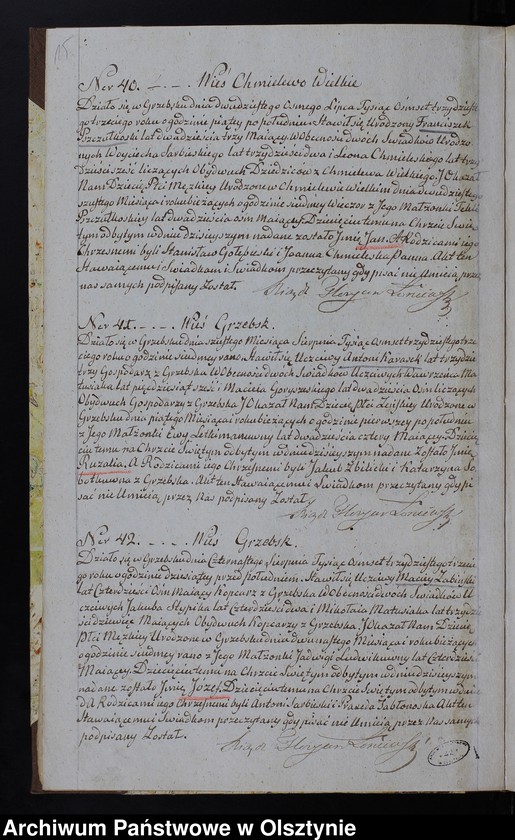 15.
Ner 40. – . – . Wieś Chmielewo Wielkie
Działo się w Grzebsku dnia dwudziestego Osmego Lipca Tysiąc Ośmset trzydzieste-
go trzeciego roku o godzinie piątey po południu. Stawił się Urodzony Franciszek
lat dwadzieścia trzy Maiący, W Obecności dwóch Świadków Urodzo-
nych Woyciecha Sarbieskiego lat trzydzieści dwa i Leona Chmieleskiego lat trzy-
dzieści sześć liczących Obydwuch Dziedziców z Chmielewa Wielkiego. I Okazał
Nam Dziecię Płci Męzkiey Urodzone w Chmielewie Wielkim dnia dwudziestego
szustego Miesiąca i roku bieżących o godzinie siudmey Wieczor z Jego Małżonki
lat dwadzieścia ośm Maiącey. Dziecięciu temu na Chrzcie Swię-
tym odbytym w dniu dzisieyszym nadane zostało Jmie Jan. A Rodzicami iego
Chrzesnemi byli Stanisław Gołębeski i Joanna Chmieleska Panna. Akt ten
Stawaiącemu i Swiadkom przeczytany gdy pisać nie Umieią przez
nas samych podpisany Został.
Ner 41. – . – . Wieś Grzebsk.
Działo się w Grzebsku dnia szustego Miesiąca Sierpnia Tysiąc Ośmset trzydziestego trze-
ciego roku o godzinie siudmey rano. Stawił się Uczciwy Antoni Karasek lat trzydzieści
trzy Gospodarz z Grzebska W Obecności dwóch Świadków Uczciwych Wawrzeńca Ma-
tusiaka lat pięćdziesiąt sześć i Macieia Goryszeskiego lat dwadzieścia Ośm liczących
Obydwuch Gospodarzy z Grzebska I Okazał Nam Dziecię Płci Żeńskiey Urodzone w
Grzebsku dnia piątego Miesiąca i roku bieżących o godzinie pierwszey po południu
z Jego Małżonki Ewy lat dwadzieścia cztery Maiącey. Dziecię-
ciu temu na Chrzcie Swiętym odbytym w dniu dzisieyszym nadane Zostało Jmie
Ruzalia. A Rodzicami iego Chrzesnemi byli Jakub Zbilicki i Katarzyna So-
botkowna z Grzebska. Akt ten Stawaiącemu i Swiadkom przeczytany gdy pi-
sać nie Umieią, przez Nas podpisany Został.
Ner 42. – . – . Wieś Grzebsk.
Działo się w Grzebsku dnia Czternastego Sierpnia Tysiąc Ośmset trzydziestego trzeci-
ego roku o godzinie dziesiątey przed południem. Stawił się Uczciwy Maciey Zabiński
lat Czterdzieści Ośm Maiący Kopcarz z Grzebska W Obecności dwoch Swiadków U-
czciwych Jakuba Słupika lat Czterdzieści dwa i Mikołaia Matusiaka lat trzydzie-
ści dziewięć Maiących Obydwuch Kopcarzy z Grzebska. I Okazał Nam Dziecię
Płci Męzkiey Urodzone w Grzebsku dnia dwunastego Miesiąca i roku bieżących
o godzinie siudmey rano z Jego Małżonki Jadwigi Ludwikowny lat Czterdzieści
Maiącey. Dziecięciu temu na Chrzcie Swiętym odbytym w dniu dzisieyszym
nadane zostało Jmie Józef. Dziecięciu temu na Chrzcie Swiętym odbytym w dniu
A Rodzicami iego Chrzesnemi byli Antoni Sarbieski i Praxeda Jabłonoska Akt ten
Stawaiącemu i Swiadkom przeczytany gdy pisać nie Umieią przez Nas samych
podpisany Został.
Archiwum Państwowe w Olsztynie